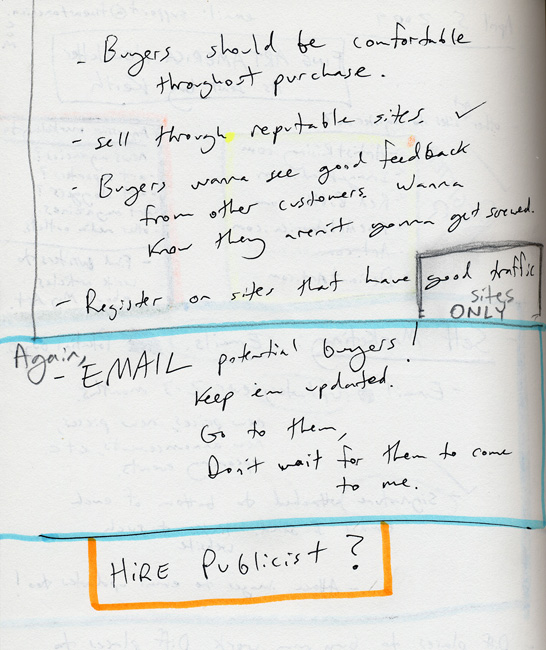 - Buyers should be comfortable
throughout purchase.
- sell through reputable sites. ✓
- Buyers wanna see good feedback
from other customers. Wanna
know they aren't gonna get screwed.
- Register on sites that have good traffic
sites
ONLY
Again,
- EMAIL potential buyers!
Keep 'em updated.
Go to them,
Don't wait for them to come
to me.
HIRE PUBLICIST?